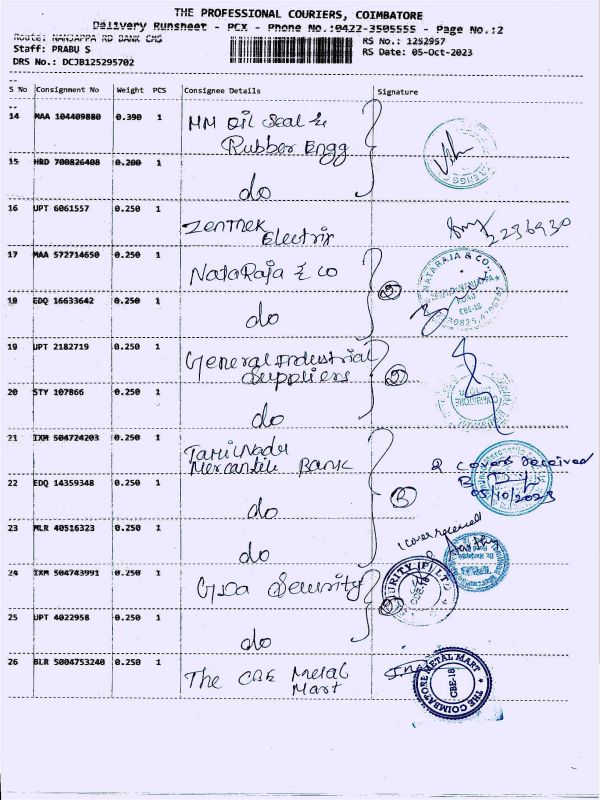 THE PROFESSIONAL COURIERS, COIMBATORE
Delivery Runsheet - PCX - Phone No.:0422-3505555 - Page No.:2
Route: NANJAPPA RD BANK CMS
RS No.: 1252957
Staff: PRABU S
RS Date: 05-Oct-2023
DRS No.: DCJB125295702
S No Consignment No Weight PCS Consignee Details Signature
14 MAA 104409880 0.390 1 MM Oil Seal &
Rubber Engg
15 HRD 700826408 0.200 1 do
16 UPT 6061557 0.250 1 Zenthek
Electrix
2236930
17 MAA 572714650 0.250 1 NataRaja & Co
NATARAJA & CO.
CBE-18
18 EDQ 16633642 0.250 1 do
19 UPT 2182719 0.250 1 General Industrial
Suppliers
20 STY 107866 0.250 1 do
21 IXM 504724203 0.250 1 TamilNadu
Mercantile Bank
2 covers received
22 EDQ 14359348 0.250 1 do
05/10/2023
23 MLR 40516323 0.250 1 do
1 cover received
24 IXM 504743991 0.250 1 GDa Security
URITY (P) LTD
CBE-18
25 UPT 4022958 0.250 1 do
26 BLR 5004753240 0.250 1 The CBE Metal
Mart
THE COIMBATORE METAL MART
CBE-18